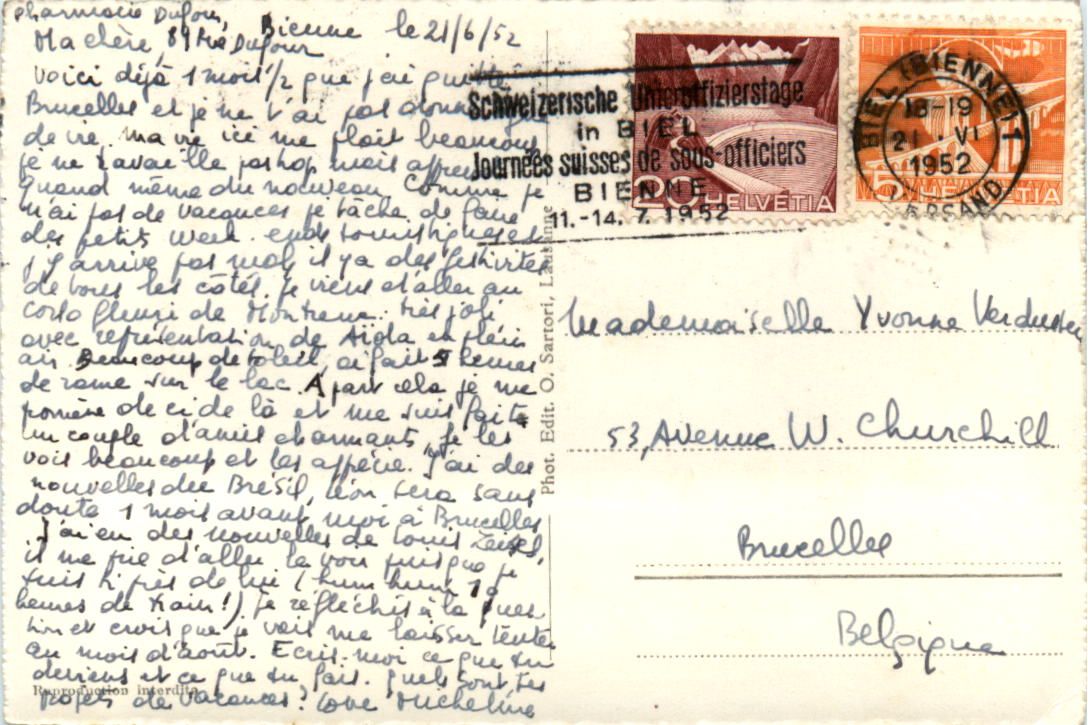 pharmacie Dufour, Bienne le 21/6/52
Ma chère, 89 rue Dufour
Voici déjà 1 mois 1/2 que j'ai quitté
Bruxelles et je ne t'ai pas donné
de vie. ma vie ici me plait beaucoup
je ne travaille pas trop mais
quand même du nouveau Comme je
n'ai pas de vacances je tâche de faire
des petits week-ends touristiques et
j'y arrive pas mal, il y a des festivités
de tous les côtés. Je viens d'aller au
corso fleuri de Montreux. très joli
avec représentation de Aïda en plein
air Beaucoup de soleil, ai fait 5 heures
de rame sur le lac. A part cela je me
promène de ci de là et me suis faite
un couple d'amis charmants, je les
vois beaucoup et les apprécie. J'ai des
nouvelles du Brésil, Léon sera sans
doute 1 mois avant moi à Bruxelles
J'ai eu des nouvelles de Louis
il me prie d'aller le voir puisque je
suis si près de lui (hum hum 10
heures de train!) je réfléchis à la ques-
tion et crois que je vais me laisser tenter
au mois d'août. Ecris-moi ce que tu
deviens et ce que tu fais. quels sont tes
projets de vacances? Love Micheline
Reproduction interdite
Phot. Edit. O. Sartori, Lausanne
Schweizerische Unteroffizierstage
in BIEL
Journées suisses de sous-officiers
BIENNE
11.-14. 7. 1952
20 HELVETIA
5 HELVETIA
BIEL (BIENNE) 1
18-19
21. VI
1952
VERSAND
Mademoiselle Yvonne
53, Avenue W. Churchill
Bruxelles
Belgique